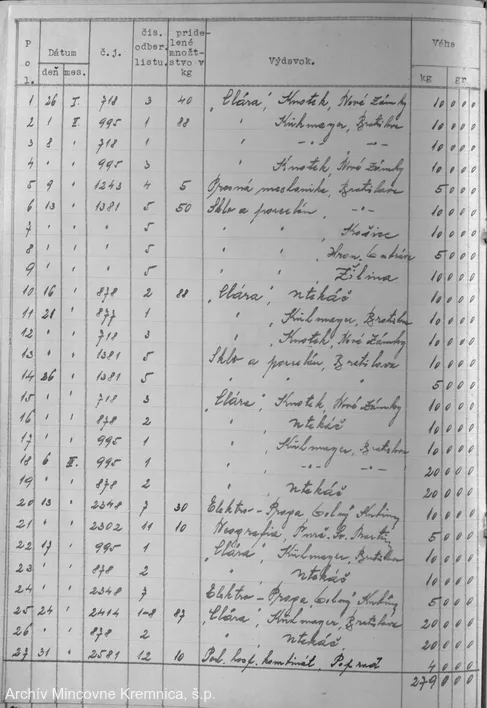 Pol. Dátum deň mes. č.j. čís. odber. listu. pridelené množstvo v kg Výdavok. Váha kg gr
1 26 I. 718 3 40 "Clára", Knotek, Nové Zámky 10 0 0 0
2 1 II. 995 1 88 " Kühlmayer, Bratislava 10 0 0 0
3 8 " 718 1 " -"- -"- 10 0 0 0
4 " " 995 3 " Knotek, Nové Zámky 10 0 0 0
5 9 " 1243 4 5 Presná mechanika, Bratislava 5 0 0 0
6 13 " 1381 5 50 Sklo a porcelán, -"- 10 0 0 0
7 " " " 5 " " , Košice 10 0 0 0
8 " " " 5 " " , Hron, 5 0 0 0
9 " " " 5 " " Žilina 10 0 0 0
10 16 " 878 2 88 "Clára", 10 0 0 0
11 21 " 877 1 " , Kühlmayer, Bratislava 10 0 0 0
12 " " 718 3 " , Knotek, Nové Zámky 10 0 0 0
13 " " 1381 5 Sklo a porcelán, Bratislava 10 0 0 0
14 26 " 1381 5 " " " 5 0 0 0
15 " " 718 3 "Clára", Knotek, Nové Zámky 10 0 0 0
16 " " 878 2 " 10 0 0 0
17 " " 995 1 " , Kühlmayer, Bratislava 10 0 0 0
18 6 III. 995 1 " , -"- -"- 20 0 0 0
19 " " 878 2 " , 20 0 0 0
20 13 " 2348 7 30 Elektro-Praga Dolný Kubín 10 0 0 0
21 " " 2302 11 10 Neografia, Turč. Sv. Martin 5 0 0 0
22 17 " 995 1 "Clára", Kühlmayer, Bratislava 10 0 0 0
23 " " 878 2 " " 10 0 0 0
24 " " 2348 7 Elektro-Praga Dolný Kubín 5 0 0 0
25 24 " 2414 1-8 87 "Clára", Kühlmayer, Bratislava 20 0 0 0
26 " " 878 2 " 20 0 0 0
27 31 " 2581 12 10 Pol. hosp. kombinát, Poprad 4 0 0 0
279 0 0 0
Archív Mincovne Kremnica, š.p.